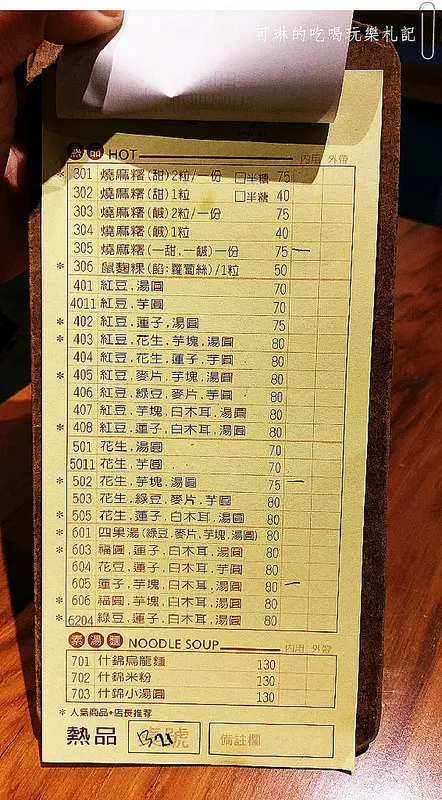 可琳的吃喝玩樂札記
熱品 HOT 內用 外帶
* 301 燒麻糬(甜)2粒/一份 □半糖 75
302 燒麻糬(甜)1粒 □半糖 40
303 燒麻糬(鹹)2粒/一份 75
304 燒麻糬(鹹)1粒 40
305 燒麻糬(一甜.一鹹)一份 75
* 306 鼠麴粿(餡:蘿蔔絲)/1粒 50
401 紅豆.湯圓 70
4011 紅豆.芋圓 70
* 402 紅豆.蓮子.湯圓 75
* 403 紅豆.花生.芋塊.湯圓 80
404 紅豆.花生.蓮子.芋圓 80
* 405 紅豆.麥片.芋塊.湯圓 80
406 紅豆.綠豆.麥片.芋圓 80
407 紅豆.芋塊.白木耳.湯圓 80
* 408 紅豆.蓮子.白木耳.湯圓 80
501 花生.湯圓 70
5011 花生.芋圓 70
* 502 花生.芋塊.湯圓 75
503 花生.綠豆.麥片.芋圓 80
* 505 花生.蓮子.白木耳.湯圓 80
* 601 四果湯(綠豆.麥片.芋塊.湯圓) 80
* 603 福圓.蓮子.白木耳.湯圓 80
604 花豆.蓮子.白木耳.芋圓 80
605 蓮子.芋塊.白木耳.湯圓 80
* 606 福圓.芋塊.白木耳.湯圓 80
* 6204 綠豆.蓮子.白木耳.湯圓 80
素湯麵 NOODLE SOUP 內用 外帶
701 什錦烏龍麵 130
702 什錦米粉 130
703 什錦小湯圓 130
* 人氣商品+店長推荐
熱品 號 備註欄